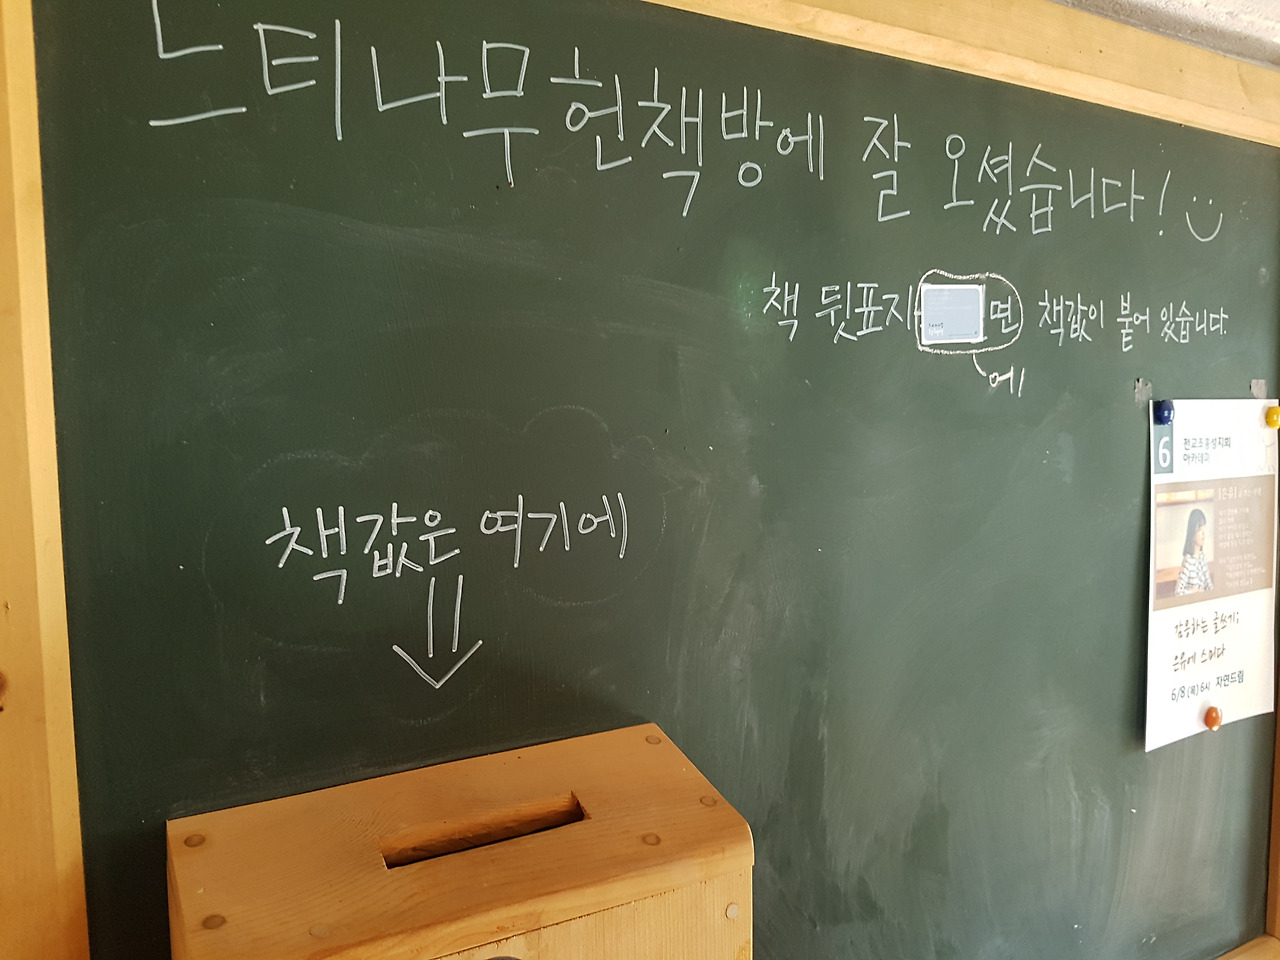 느티나무헌책방에 잘 오셨습니다!
책 뒷표지 면 책값이 붙어 있습니다.
에
책값은 여기에
6 전교조홍성지회
아카데미
감응하는 글쓰기;
은유에 스미다
6/8 (목) 6시 자연드림